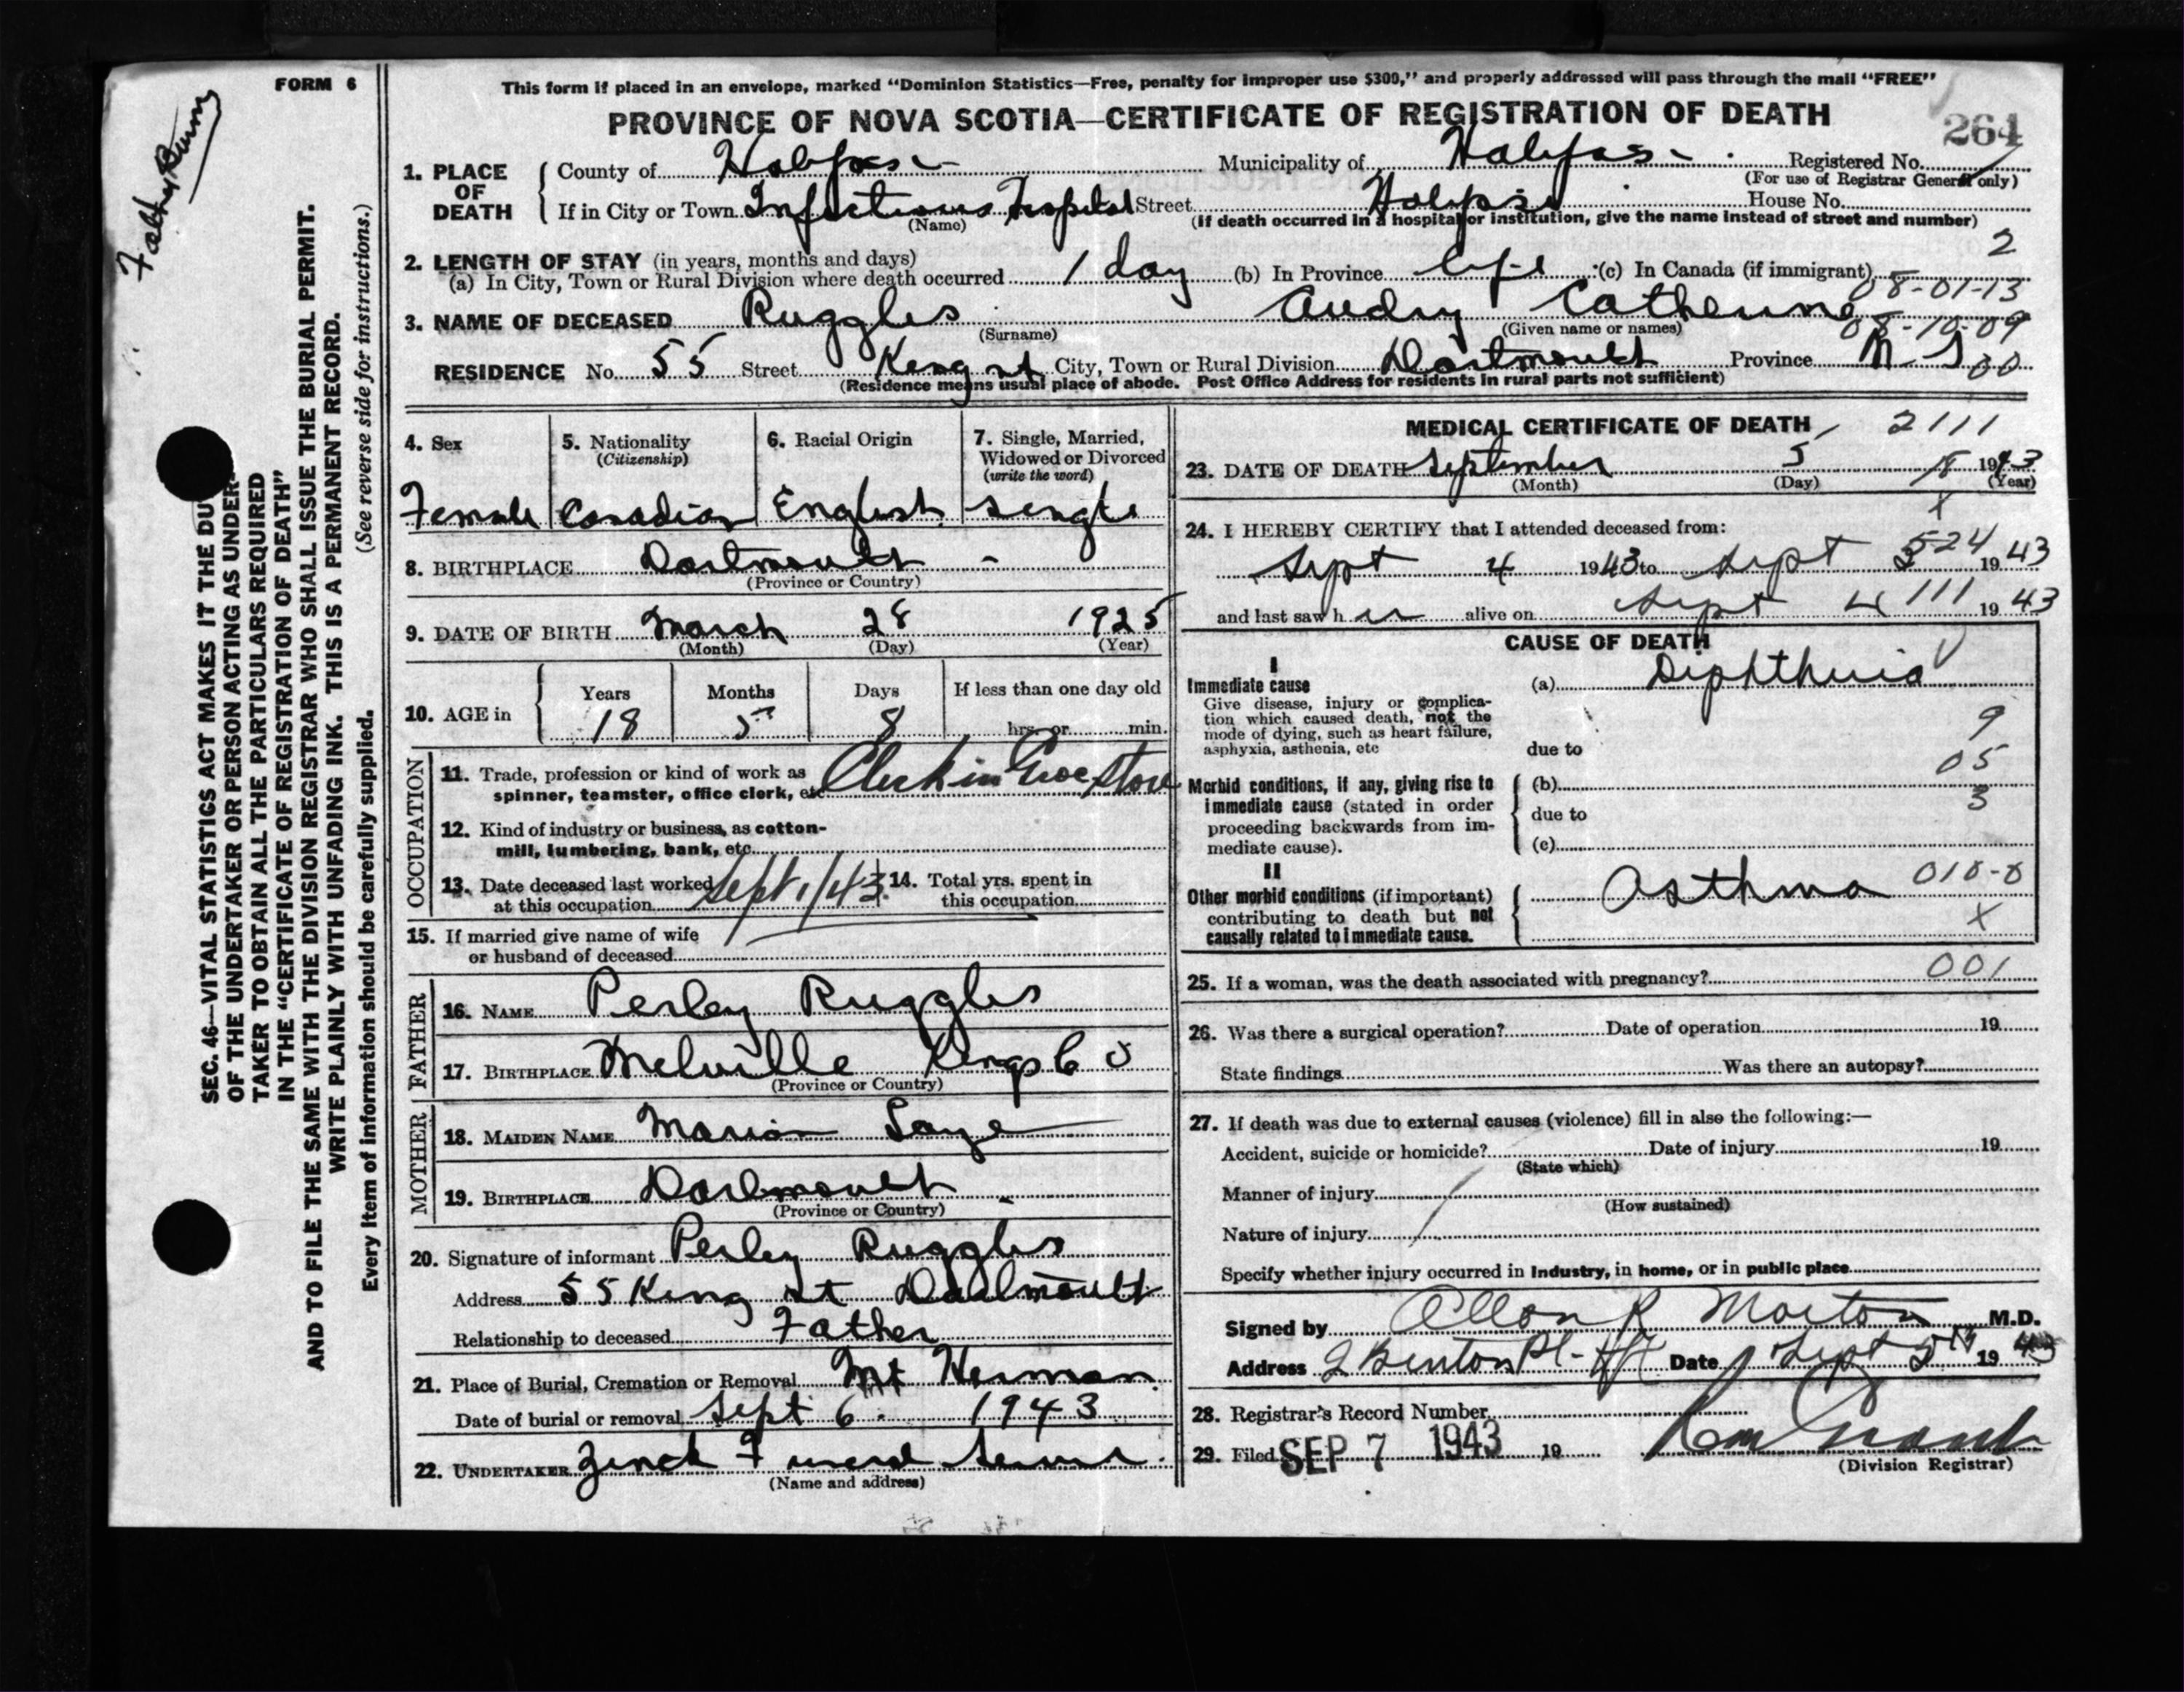 FORM 6
This form if placed in an envelope, marked "Dominion Statistics—Free, penalty for improper use $300," and properly addressed will pass through the mail "FREE"
PROVINCE OF NOVA SCOTIA—CERTIFICATE OF REGISTRATION OF DEATH
264
1. PLACE OF DEATH
County of Halifax Municipality of Halifax Registered No.
(For use of Registrar General only)
If in City or Town Infectious Hospital Street Halifax House No.
(Name) (If death occurred in a hospital or institution, give the name instead of street and number)
2
2. LENGTH OF STAY (in years, months and days)
(a) In City, Town or Rural Division where death occurred 1 day (b) In Province life (c) In Canada (if immigrant)
08-01-13
3. NAME OF DECEASED Ruggles Audry Catherine
(Surname) (Given name or names) 08-10-09
RESIDENCE No. 55 Street King st City, Town or Rural Division Dartmouth Province N.S. 00
(Residence means usual place of abode. Post Office Address for residents in rural parts not sufficient)
4. Sex
Female
5. Nationality
(Citizenship)
Canadian
6. Racial Origin
English
7. Single, Married,
Widowed or Divorced
(write the word)
single
8. BIRTHPLACE Dartmouth
(Province or Country)
9. DATE OF BIRTH March 28 1925
(Month) (Day) (Year)
10. AGE in
Years Months Days If less than one day old
18 5 8 hrs. or min.
OCCUPATION
11. Trade, profession or kind of work as
spinner, teamster, office clerk, etc. Clerk in Groc Store
12. Kind of industry or business, as cotton-
mill, lumbering, bank, etc.
13. Date deceased last worked
at this occupation Sept 1/43
14. Total yrs. spent in
this occupation
15. If married give name of wife
or husband of deceased
FATHER
16. NAME Perley Ruggles
17. BIRTHPLACE Melville Kings Co
(Province or Country)
MOTHER
18. MAIDEN NAME Marion
19. BIRTHPLACE Dartmouth
(Province or Country)
20. Signature of informant Perley Ruggles
Address 55 King st Dartmouth
Relationship to deceased Father
21. Place of Burial, Cremation or Removal Mt Herman
Date of burial or removal Sept 6 1943
22. UNDERTAKER Zinck Funeral Service
(Name and address)
MEDICAL CERTIFICATE OF DEATH 2111
23. DATE OF DEATH September 5 1943
(Month) (Day) (Year)
X
24. I HEREBY CERTIFY that I attended deceased from:
524
Sept 4 1943 to Sept 5 1943
and last saw h er alive on Sept 4 111 1943
CAUSE OF DEATH
I
Immediate cause
Give disease, injury or complica-
tion which caused death, not the
mode of dying, such as heart failure,
asphyxia, asthenia, etc
(a) Diphtheria
9
due to
05
Morbid conditions, if any, giving rise to
immediate cause (stated in order
proceeding backwards from im-
mediate cause).
(b)
3
due to
(c)
II
Other morbid conditions (if important)
contributing to death but not
causally related to immediate cause.
Asthma 010-0
X
25. If a woman, was the death associated with pregnancy? 001
26. Was there a surgical operation? Date of operation 19
State findings Was there an autopsy?
27. If death was due to external causes (violence) fill in also the following:—
Accident, suicide or homicide? Date of injury 19
(State which)
Manner of injury
(How sustained)
Nature of injury
Specify whether injury occurred in industry, in home, or in public place
Signed by Allan R Morton M.D.
Address 2 Benton Pl - Hfx Date Sept 5th 1943
28. Registrar's Record Number
29. Filed SEP 7 1943 19
(Division Registrar)
SEC. 46—VITAL STATISTICS ACT MAKES IT THE DU
OF THE UNDERTAKER OR PERSON ACTING AS UNDER-
TAKER TO OBTAIN ALL THE PARTICULARS REQUIRED
IN THE "CERTIFICATE OF REGISTRATION OF DEATH"
AND TO FILE THE SAME WITH THE DIVISION REGISTRAR WHO SHALL ISSUE THE BURIAL PERMIT.
WRITE PLAINLY WITH UNFADING INK. THIS IS A PERMANENT RECORD.
Every item of information should be carefully supplied. (See reverse side for instructions.)